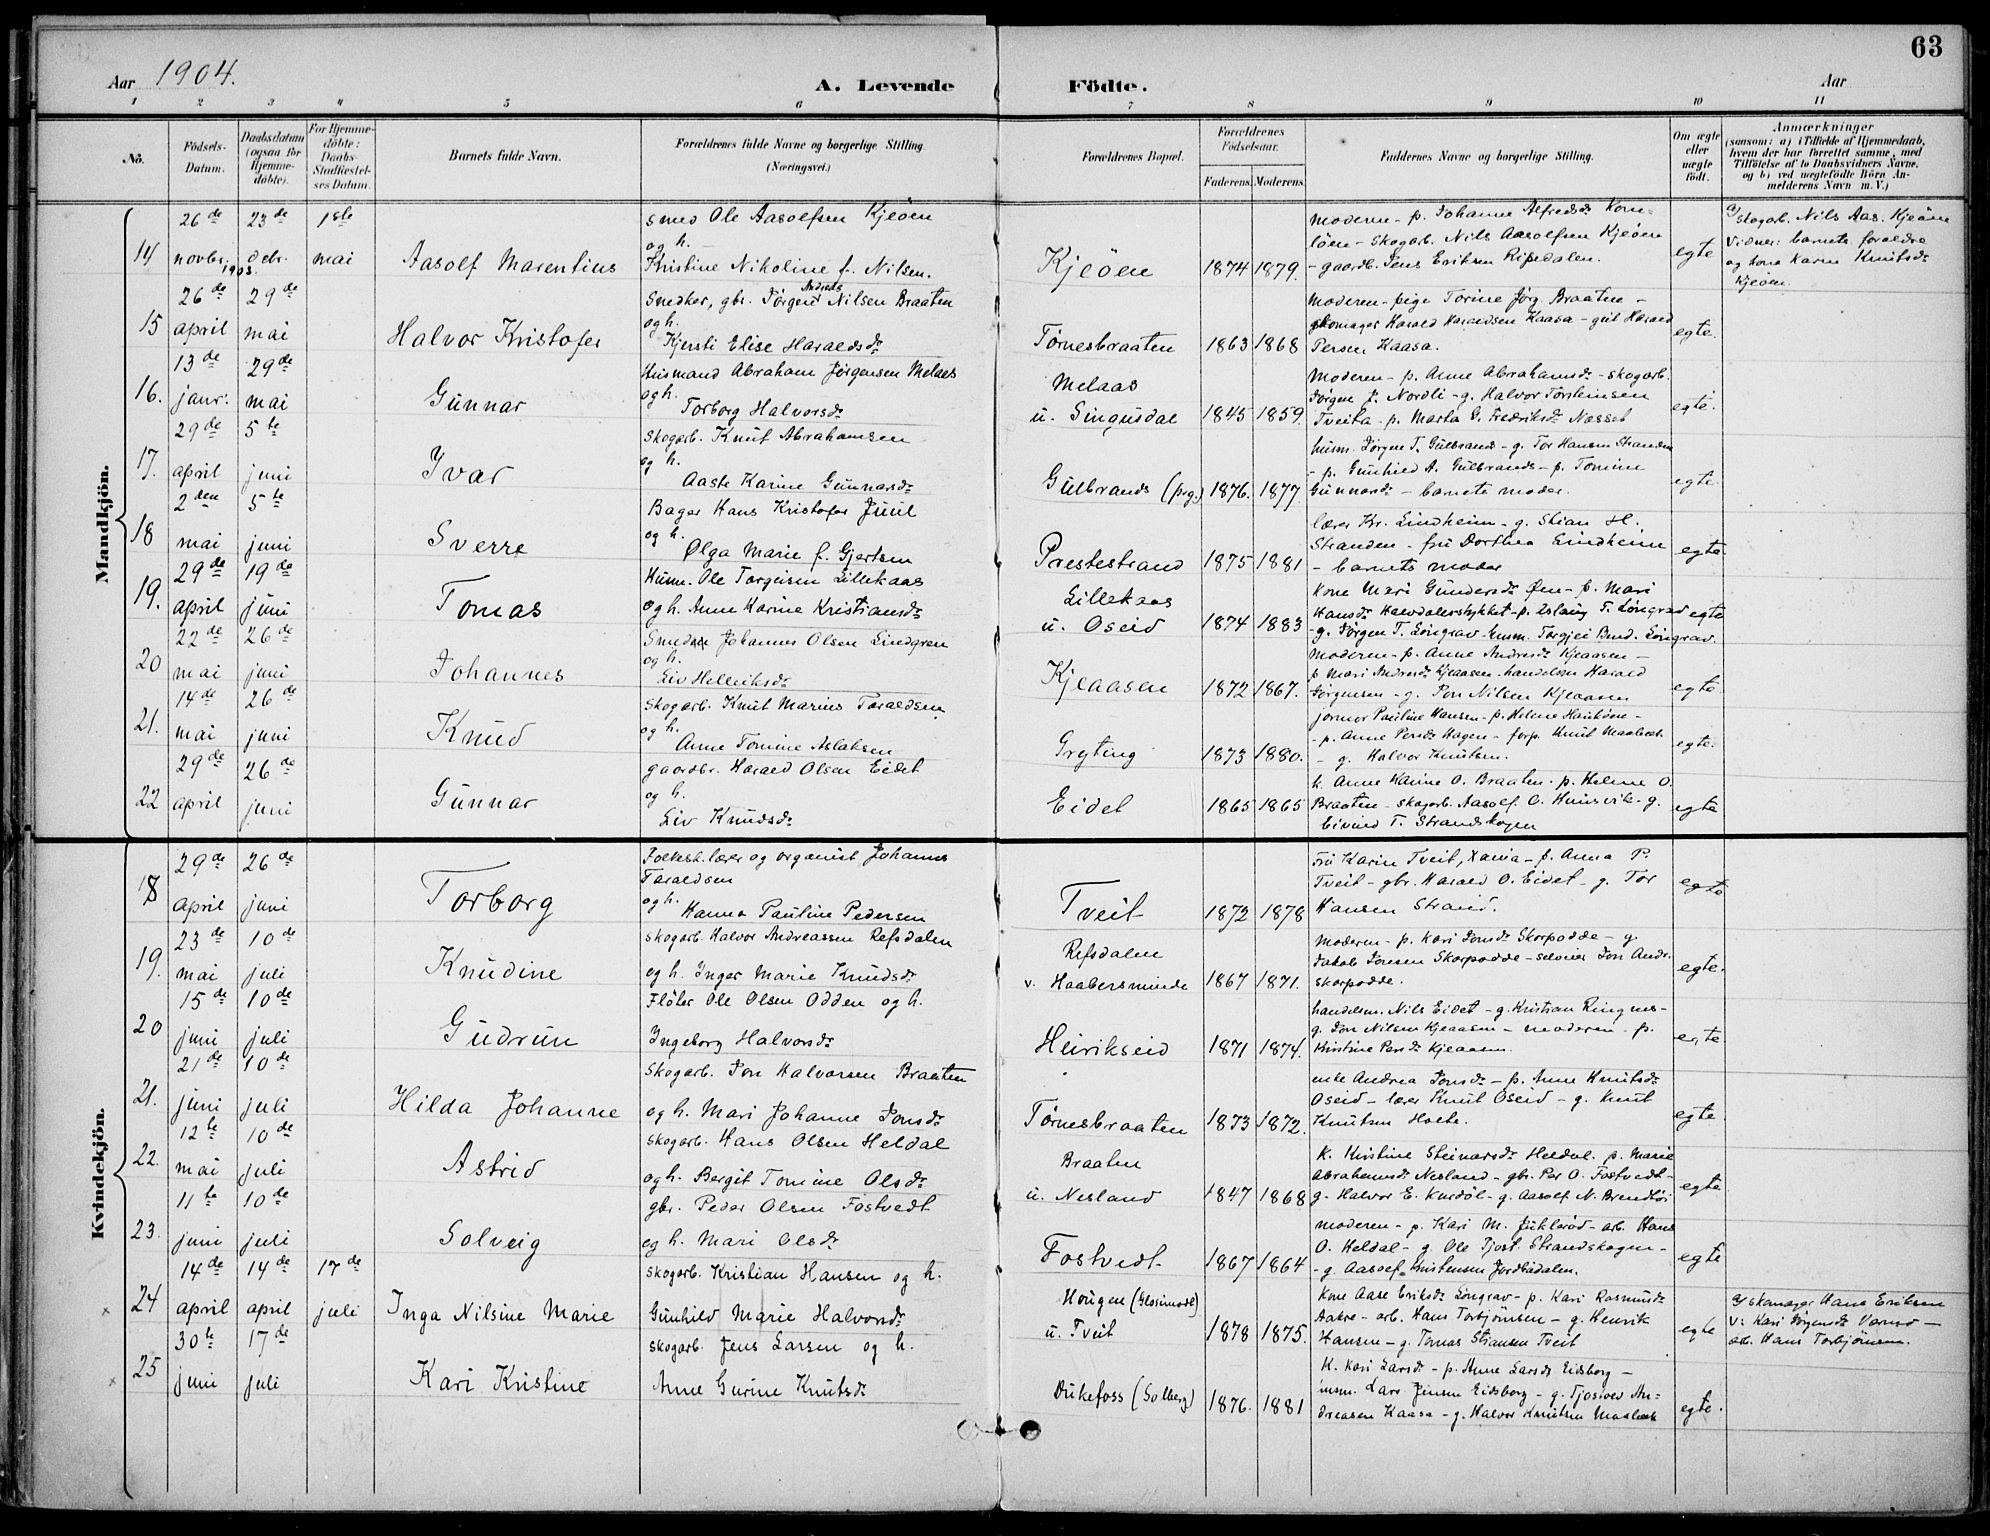 63
Aar 1904.
A. Levende Födte.
Aar
1 2 3 4 5 6 7 8 9 10 11
No.
Födsels-Datum.
Daabsdatum (ogsaa for Hjemme-döbte).
For Hjemme-döbte: Daabs-Stadfæstel-ses Datum.
Barnets fulde Navn.
Forældrenes fulde Navne og borgerlige Stilling (Næringsvei.)
Forældrenes Bopæl.
Forældrenes Födselsaar.
Faderens. Moderens.
Faddernes Navne og borgerlige Stilling.
Om ægte eller uægte födt.
Anmærkninger
(saasom: a) i Tilfælde af Hjemmedaab,
hvem der har forrettet samme, med
Tilföielse af to Daabsvidners Navne,
og b) ved uægtefödte Börn An-
melderens Navn m. V.)
Mandkjön.
14 26de novbr. 1903 23de debr. 1ste mai
Aasolf Marentius
Smed Ole Aasolfsen Kjeöen
og h.
Kristine Nikoline f. Nilsen.
Kjeöen 1874 1879.
Moderen - p. Johanne Alfredsdr
löen - Skogarb. Nils Aasolfsen Kjeöen
- gaardb. Jens Eriksen Ripedalen.
egte
a/ Skogarb. Nils Aas. Kjeöen
Vidner: barnets foraldre
og kone Karen Knutsdr
Kjeöen.
15 26de april 29de mai
Halvor Kristofer
Snedker, gbr. Jørgen Andreas Nilsen Braaten
og h.
Kjersti Elise Haraldsdr
Tørnesbraaten 1863 1868
Moderen - pige Torine Jørg. Braaten -
skomager Harald Haraldsen Kaasa - gut Harald
Persen Kaasa.
egte.
16. 13de janr. 29de mai
Gunnar
Husmand Abraham Jørgensen Melaas
og h.
Torborg Halvorsdr
Melaas
u. Singusdal 1845 1859.
Moderen - p. Anne Abrahamsdr - skogarb.
Jörgen J. Nordli - g. Halvor Torsteinsen
Tveita - p. Marta G. Fredriksdr Næsset
egte.
17. 29de april 5te juni
Ivar
Skogarb. Knut Abrahamsen
og h.
Aaste Karine Gunnarsdr
Gulbrands (prg.) 1876. 1877.
husm. Jörgen T. Gulbrands - g. Tor Hansen Stranden
- p. Gunhild A. Gulbrands - p. Tomine
Gunnarsdr - barnets moder.
egte.
18 2den mai 5te juni
Sverre
Bager Hans Kristofer Juul
og h.
Olga Marie f. Gjertsen
Prestestrand 1875 1881
lærer Kr. Lindheim - g. Stian H.
Stranden - fru Dorthea Lindheim
- barnets moder
egte
19. 29de april 19de juni
Tomas
Husm. Ole Torgersen Lillekaas
og h. Anne Karine Kristiansdr
Lillekaas
u. Oseid 1874 1883
Kone Mari Gundersdr Øen - p. Mari
Hansdr Halvdalerstykket - p. Aslaug T. Löngrav
- g. Jörgen T. Löngrav - husm. Torgjei Bend. Löngrav.
egte
20 22de mai 26de juni
Johannes
Smed Johannes Olsen Lindgren
og h.
Liv Helleiksdr
Kjeaasen 1872 1867.
Moderen - p. Anne Andresdr Kjeaasen -
p. Mari Andresdr Kjeaasen - handelsm. Harald
Jörgensen - g. Jon Nilsen Kjeaasen
egte
21. 14de mai 26de juni
Knud
Skogarb. Knut Marius Taraldsen
og h.
Anne Tomine Aslaksen
Gryting 1873 1880.
jormor Pauline Hansen - p. Helene Haukøen -
- p. Anne Persdr Hagen - forp. Knut
- g. Halvor Knutsen.
egte.
22 29de april 26de juni
Gunnar
gaardbr. Harald Olsen Eidet
og h.
Liv Knudsdr
Eidet 1865 1865
k. Anne Karine O. Braaten - p. Helene O.
Braaten - skogarb. Aasolf O. Husvik - g.
Eivind T. Strandskogen
egte
Kvindekjön.
18 29de april 26de juni
Torborg
Folkesk.lærer og organist Johannes
Taraldsen
og h.
Hanna Pauline Pedersen
Tveit 1872 1878
Fru Karin Tveit, Xania - p. Anna P.
Tveit - gbr. Harald O. Eidet - g. Tor
Hansen Strand.
egte
19. 23de mai 10de juli
Knudine
Skogarb. Halvor Andreassen Refsdalen
og h. Inger Marie Knudsdr
Refsdalen
v. Haabersminde 1867 1871.
Moderen - p. Kari Jonsdr Skorpodde - g.
Jakob Jonsen Skorpodde - selveier Jon Andr.
Skorpodde.
egte.
20 15de juni 10de juli
Gudrun
Fløter Ole Olsen Odden og h.
Ingeborg Halvorsdr
Heirikseid 1871 1874.
handelsm. Nils Eidet - g. Kristian Ringnes -
g. Jon Nilsen Kjeaasen - moderen - p.
Kristine Persdr Kjeaasen.
egte
21. 21de juni 10de juli
Hilda Johanne
Skogarb. Jon Halvorsen Braaten
og h. Mari Johanne Jonsdr
Tørnesbraaten 1873 1872.
enke Andrea Jonsdr - p. Anne Knutsdr
Oseid - lærer Knut Oseid - g. Knut
Knutsen Holte.
egte.
22. 12te mai 10de juli
Astrid
Skogarb. Hans Olsen Heldal
og h. Bergit Tomine Olsdr
Braaten
u. Nesland 1847 1868
K. Kristine Steinarsdr Heldal. p. Marie
Abrahamsdr Nesland - gbr. Per O. Fostvedt -
g. Halvor E. Kurdöl - g. Aasolf N. Brendlös
egte
23. 11te juni 10de juli
Solveig
gbr. Peder Olsen Fostvedt
og h. Mari Olsdr
Fostvedt 1867 1864
Moderen - p. Kari M. Juklerød - arb. Hans
O. Heldal - g. Ole Tjost. Strandskogen -
- g. Aasolf Kristensen Jordbødalen.
egte
24 14de april 14de april 17de juli
Inga Nilsine Marie
Skogarb. Kristian Hansen og h.
Gunhild Marie Halvorsdr
Hougen (Glosimodt)
u. Tveit 1878 1875.
Kone Aase Eriksdr Löngrav - p. Kari Rasmusdr
Aakre - arb. Hans Torbjørnsen - g. Henrik
Hansen - g. Tomas Stiansen Tveit
egte
a/ Skomager Hans Eriksen
V: Kari Jörgensdr
arb. Hans Torbjørnsen.
25 30te juni 17de juli
Kari Kristine
Skogarb. Jens Larsen og h.
Anne Gurine Knutsdr
Dukefoss (Solberg) 1876. 1881
K. Kari Larsdr - p. Anne Larsdr Eidsborg -
insm. Lars Jensen Eidsborg - g. Tjostov An-
dreasen Kaasa - g. Halvor Knutsen
egte.